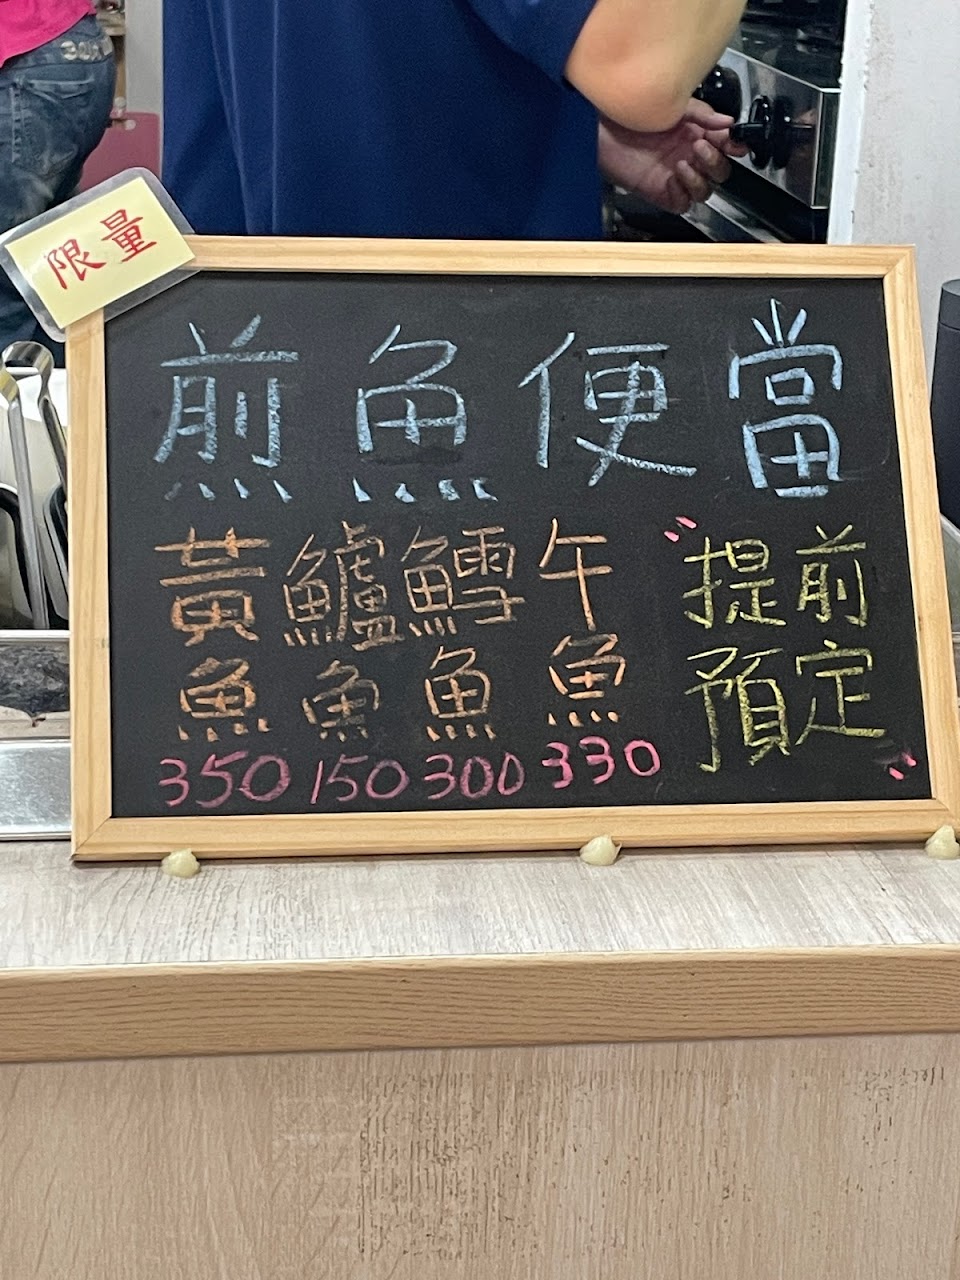 限量
煎魚便當
黃魚 350
鱸魚 150
鱈魚 300
午魚 330
"提前
預定"